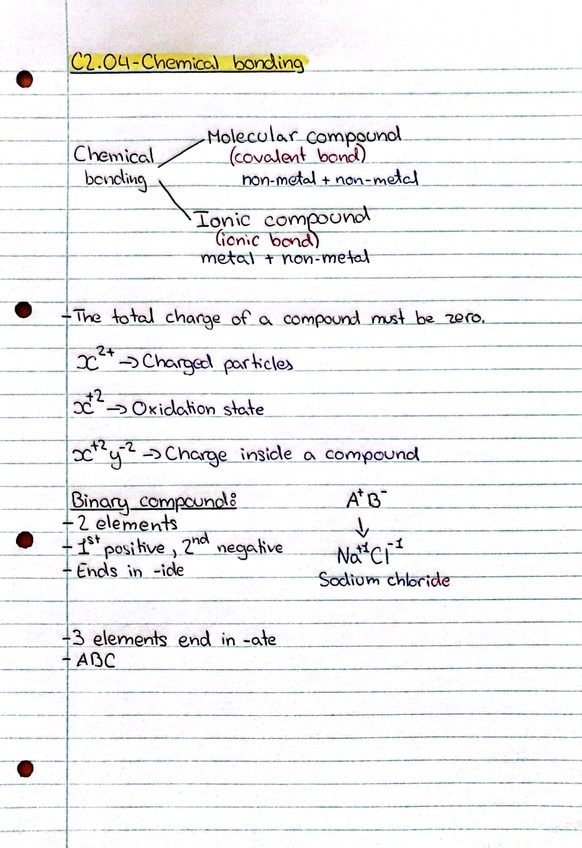 C2.04-Chemical bonding
Molecular compound
Chemical
(covalent bond)
bonding
non-metal + non-metal
Ionic compound
(ionic bond)
metal + non-metal
-The total charge of a compound must be zero.
x²⁺ → Charged particles
x⁺² → Oxidation state
x⁺²y⁻² → Charge inside a compound
Binary compound:
-2 elements
-1st positive, 2nd negative
-Ends in -ide
A⁺B⁻
↓
Na⁺¹Cl⁻¹
Sodium chloride
-3 elements end in -ate
-ABC